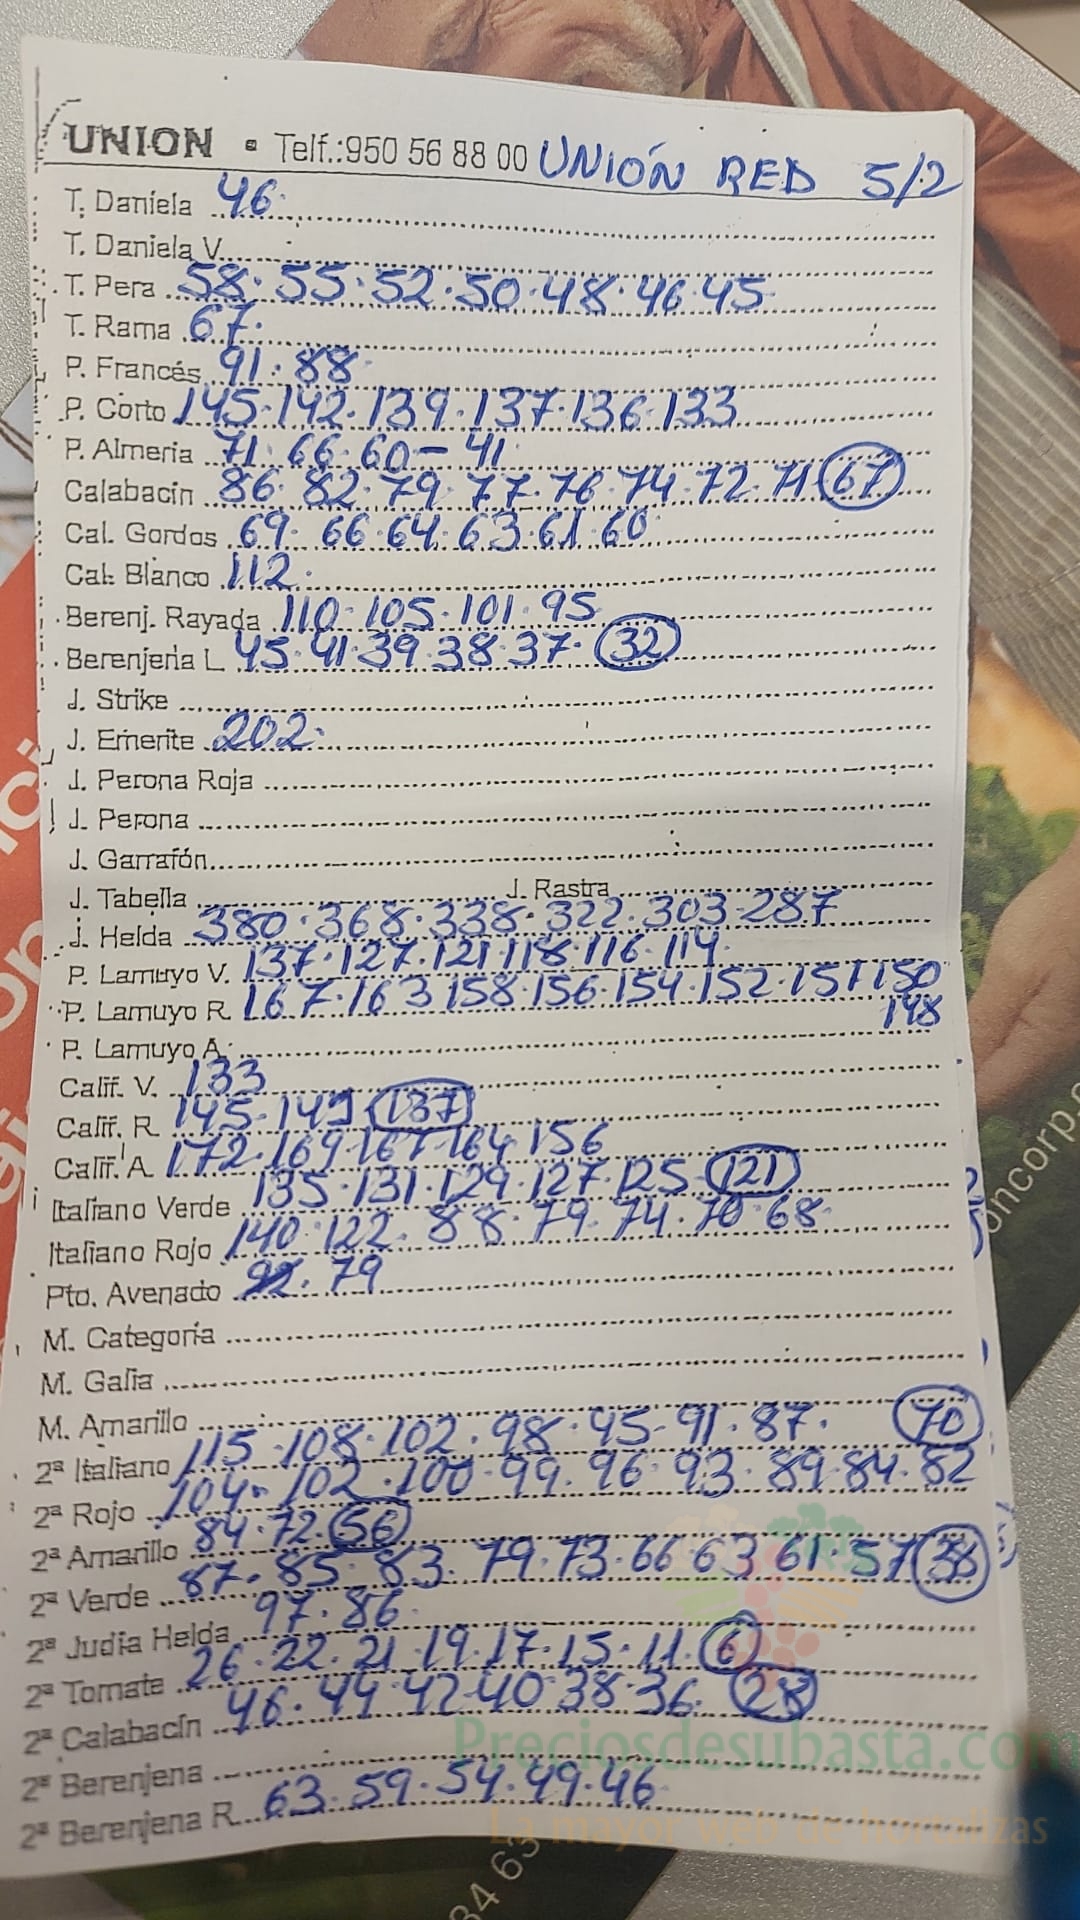 UNION • Telf.:950 56 88 00 UNIÓN RED 5/2
T. Daniela 46.
T. Daniela V.
T. Pera 58.55.52.50.48.46.45
T. Rama 67.
P. Francés 91.88
P. Corto 145.142.139.137.136.133
P. Almeria 71.66.60-41
Calabacin 86.82.79.77.76.74.72.71 67
Cal. Gordos 69.66.64.63.61.60
Cal. Blanco 112.
Berenj. Rayada 110.105.101.95
Berenjena L 45.41.39.38.37. 32
J. Strike
J. Emerite 202.
J. Perona Roja
J. Perona
J. Garrafón
J. Tabella J. Rastra
J. Helda 380.368.338.322.303.287
P. Lamuyo V. 137.127.121.118.116.114
P. Lamuyo R. 167.163 158.156.154.152.151 150
148
P. Lamuyo A.
Calif. V. 133
Calif. R. 145. 137
Calif. A. 172.169.167.164 156
Italiano Verde 135.131.129.127.125. 121
Italiano Rojo 140.122.88.79.74.70.68
Pto. Avenado .79
M. Categoría
M. Galia
M. Amarillo
2ª Italiano 115.108.102.98.95.91.87. 70
2ª Rojo 104.102.100.99.96.93.89.84.82
2ª Amarillo 84.72. 56
2ª Verde 87.85.83.79.73.66.63 61.57 38
2ª Judia Helda 97.86
2ª Tomate 26.22.21.19.17.15.11. 6
2ª Calabacín 46.44.42.40 38.36. 28
2ª Berenjena
2ª Berenjena R. 63.59.54.49.46
Preciosdesubasta.com
La mayor web de hortalizas
oncorp.
84 63